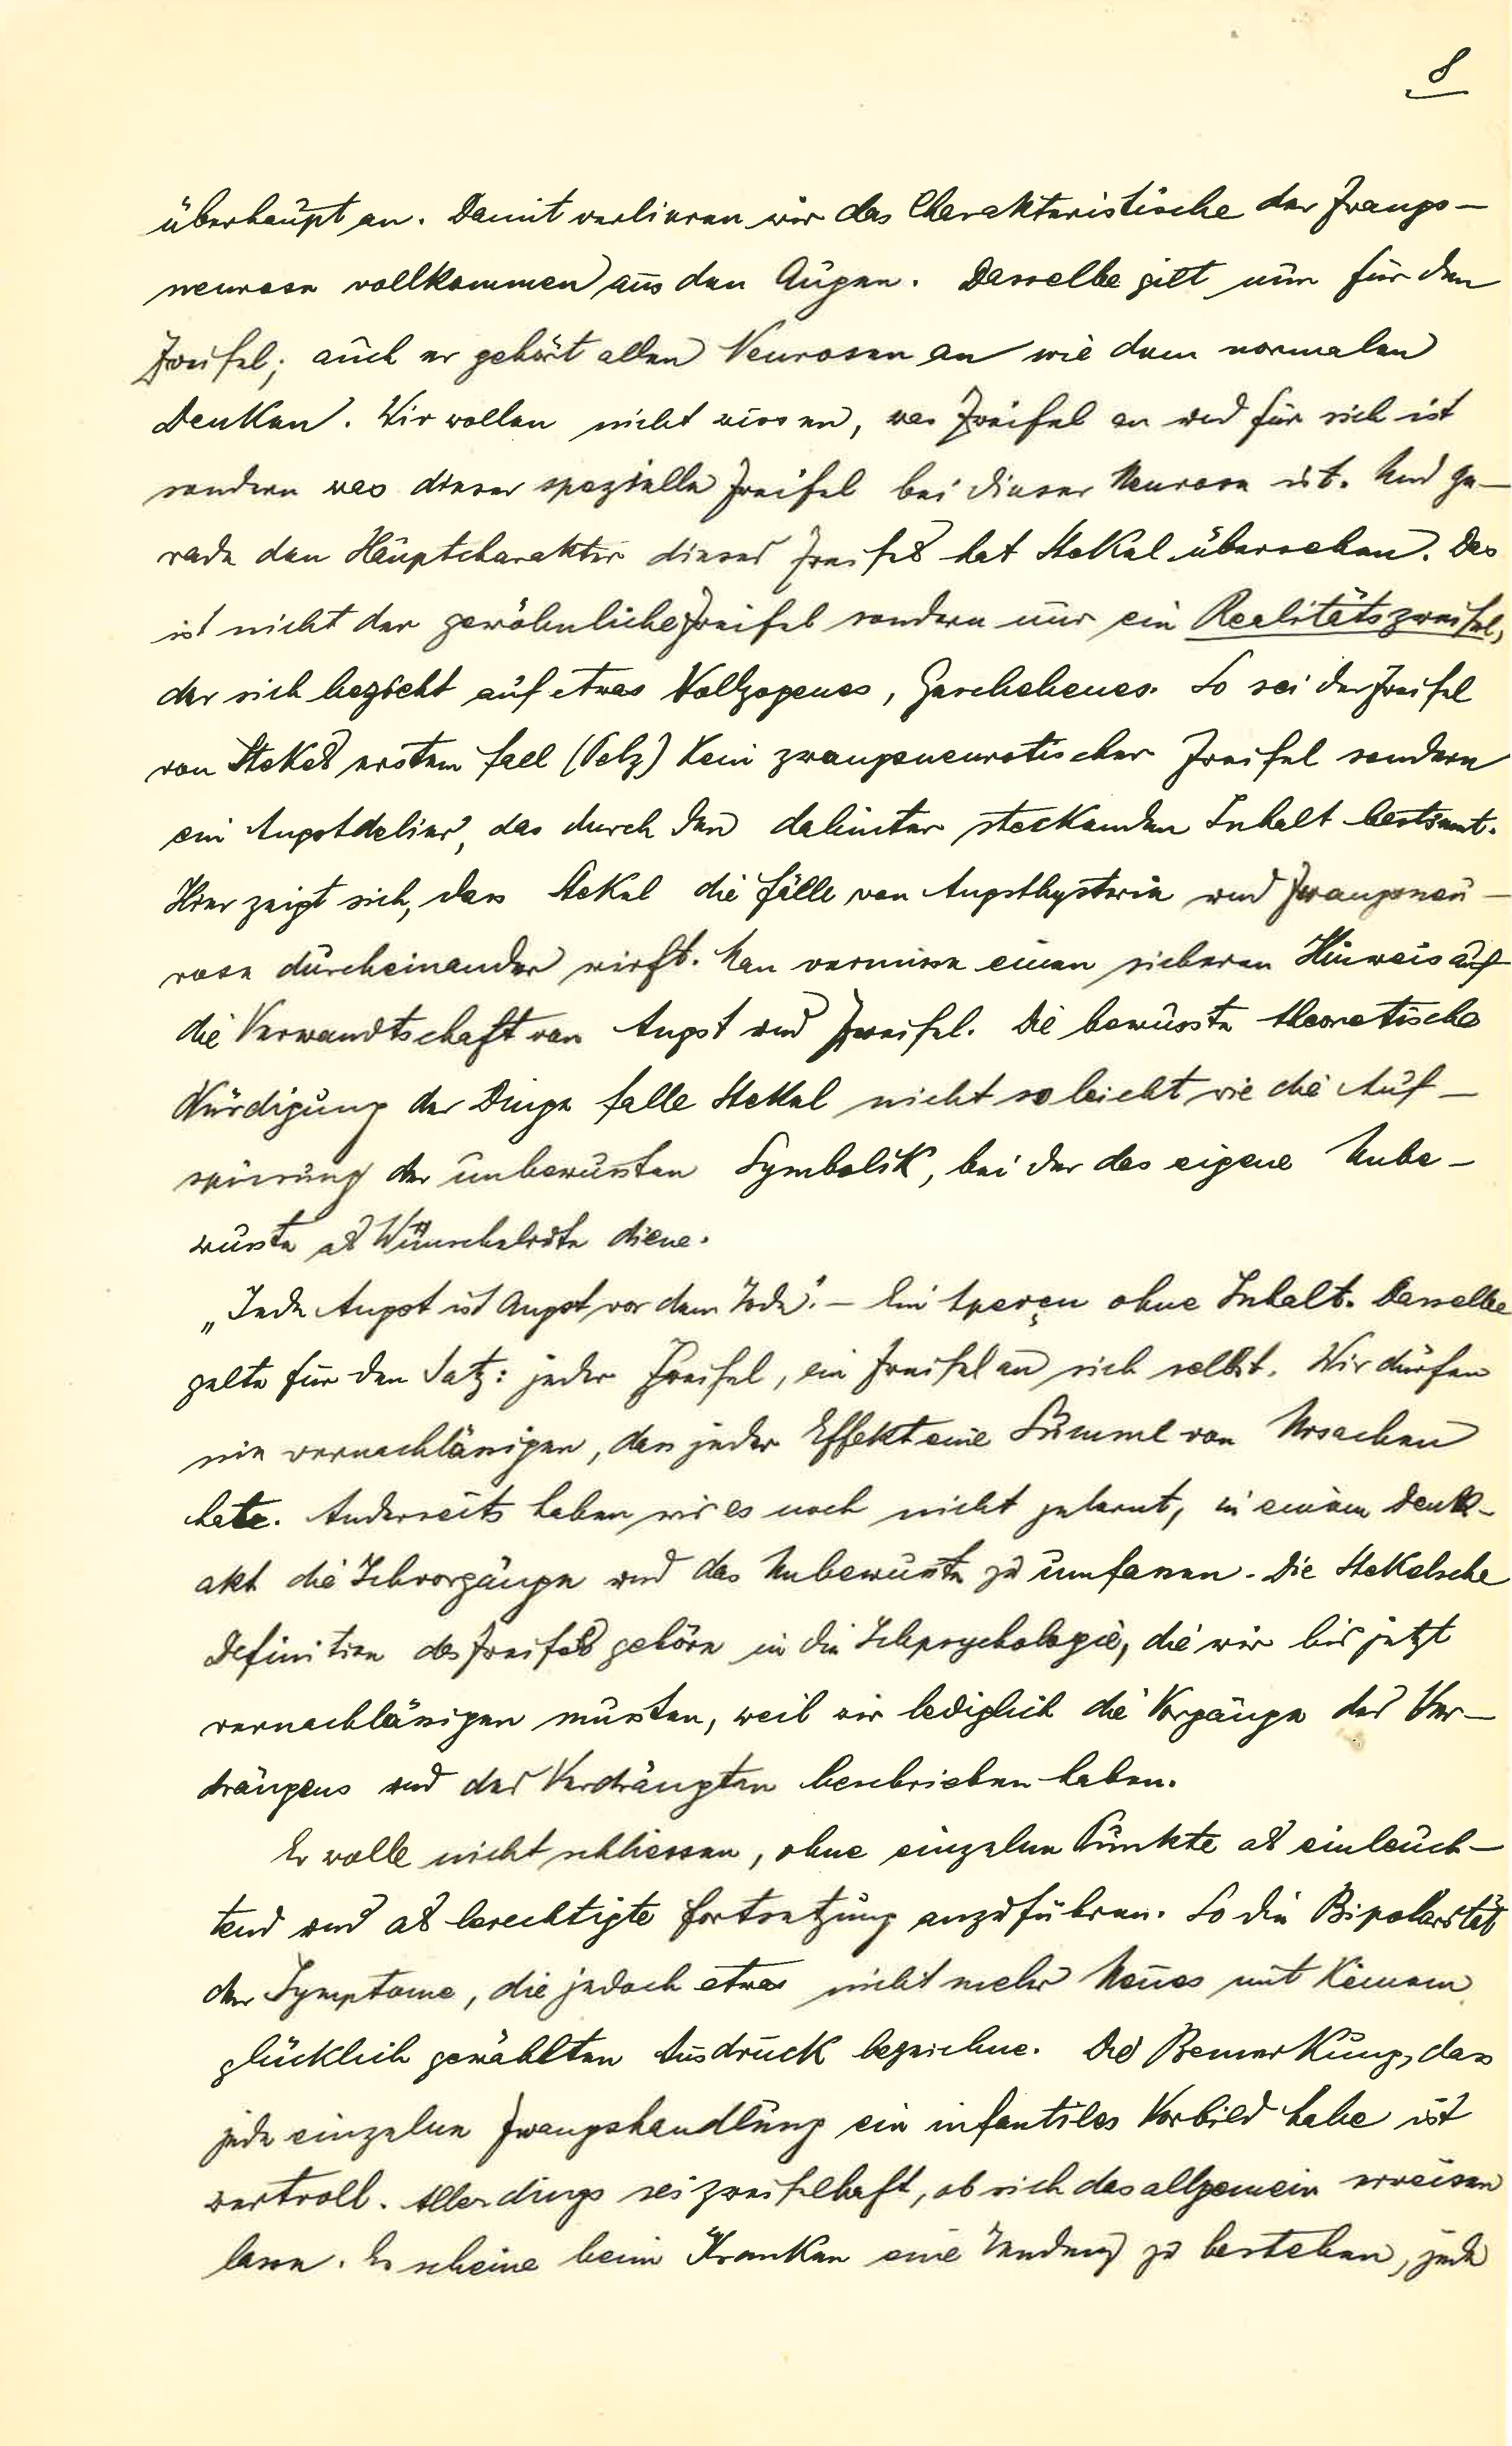 8
überhaupt an. Damit verlieren wir das Charakteristische der Zwangs-
neurose vollkommen aus den Augen. Dasselbe gilt nun für den
Zweifel; auch er gehört allen Neurosen an wie dem normalen
Denken. Wir wollen nicht wissen, was Zweifel an und für sich ist
sondern was dieser spezielle Zweifel bei dieser Neurose ist. Und ge-
rade den Hauptcharakter dieses Zweifels hat Stekel übersehen. Das
ist nicht der gewöhnliche Zweifel sondern nur ein Realitätszweifel,
der sich bezieht auf etwas Vollzogenes, Geschehenes. So sei der Zweifel
von Stekels erstem Fall (Pelz) kein zwangsneurotischer Zweifel sondern
ein Angstdelier, das durch den dahinter steckenden Inhalt bestimt.
Hier zeigt sich, dass Stekel die Fälle von Angsthysterie und Zwangsneu-
rose durcheinander wirft. Man vermisse einen sicheren Hinweis auf
die Verwandtschaft von Angst und Zweifel. Die bewusste theoretische
Würdigung der Dinge falle Stekel nicht so leicht wie die Auf-
spürung der unbewussten Symbolik, bei der das eigene Unbe-
wusste als Wünschelrute diene.
„Jede Angst ist Angst vor dem Tode". – Ein Aperçu ohne Inhalt. Dasselbe
gelte für den Satz: jeder Zweifel, ein Zweifel an sich selbst. Wir dürfen
nie vernachlässigen, dass jeder Effekt eine Summe von Ursachen
hate. Anderseits haben wir es noch nicht gelernt, in einem Denk-
akt die Ichvorgänge und das Unbewusste zu umfassen. Die Stekelsche
Definition des Zweifels gehöre in die Ichpsychologie, die wir bis jetzt
vernachlässigen mussten, weil wir lediglich die Vorgänge des Ver-
drängens und des Verdrängten beschrieben haben.
Er wolle nicht schliessen, ohne einzelne Punkte als einleuch-
tend und als berechtigte Fortsetzung anzuführen. So die Bipolarität
der Symptome, die jedoch etwas nicht mehr Neues mit keinem
glücklich gewählten Ausdruck bezeichne. Die Bemerkung, dass
jede einzelne Zwangshandlung ein infantiles Vorbild habe ist
wertvoll. Allerdings sei zweifelhaft, ob sich das allgemein erweisen
lasse. Es scheine beim Kranken eine Tendenz zu bestehen, jede